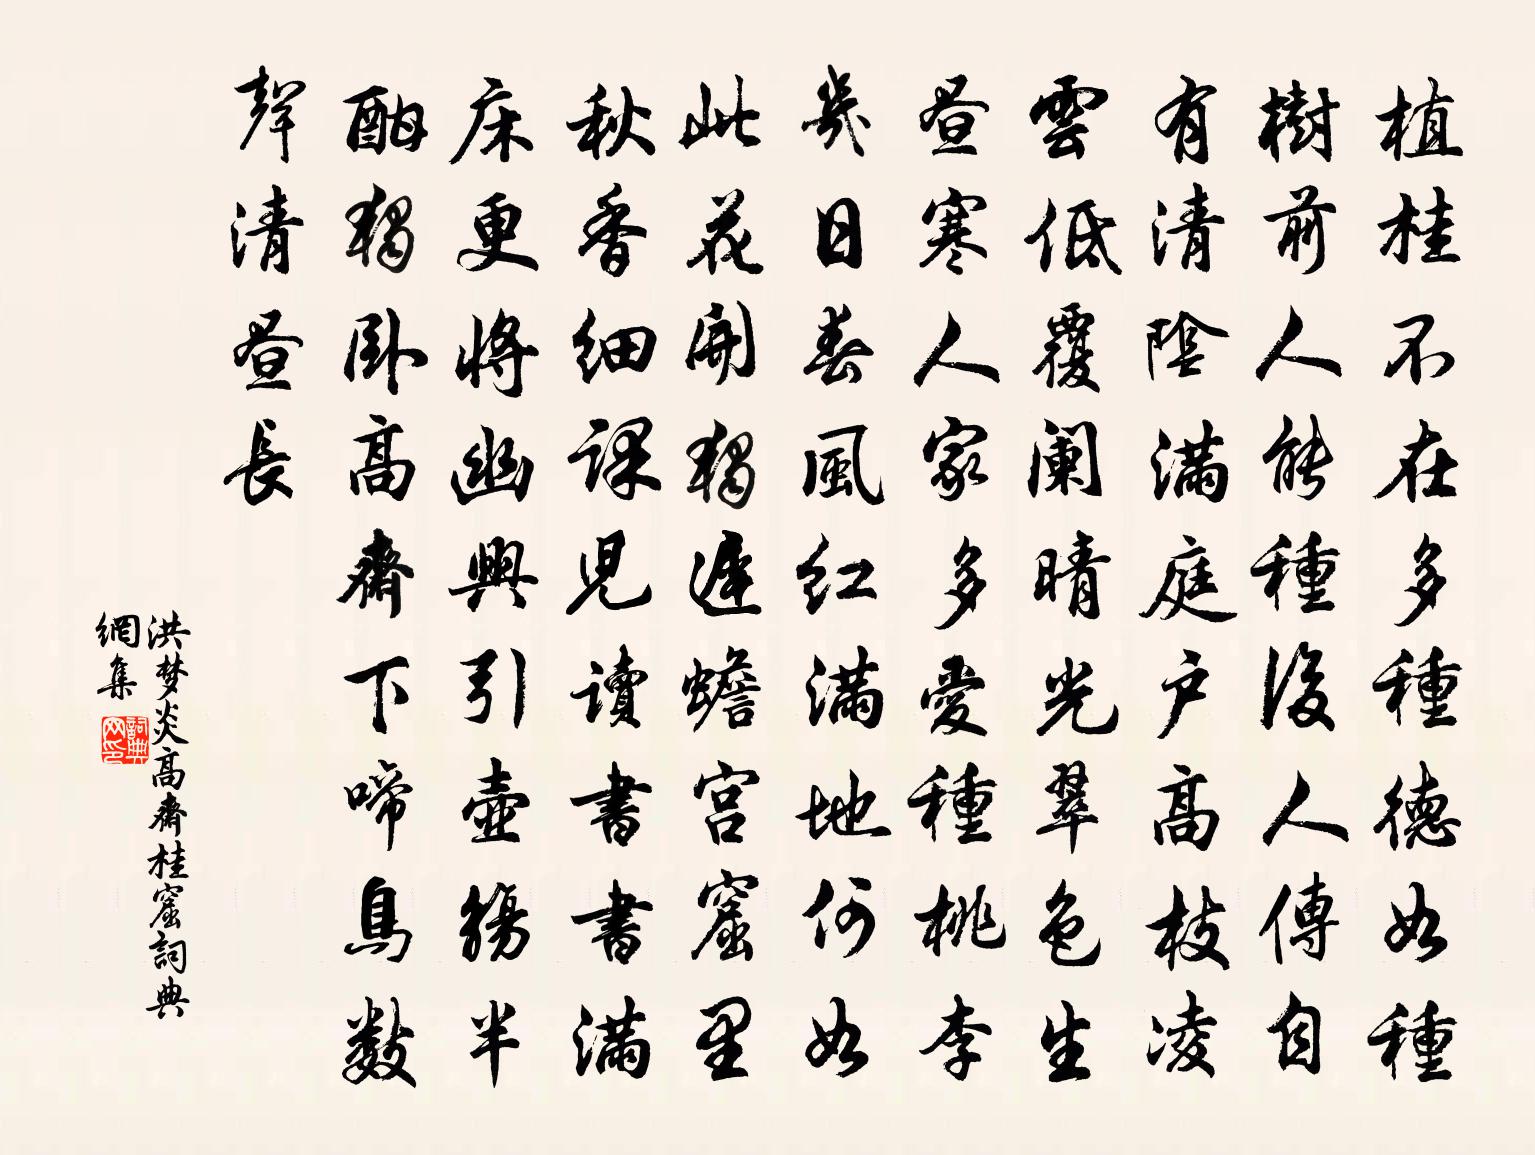 植桂不在多種德如種
樹前人能種後人傳自
有清陰滿庭戶高枝凌
雲低覆闌晴光翠色生
晝寒人家多愛種桃李
幾日春風红滿地何如
此花開獨遲蟾宮窟里
秋香细課児讀書書滿
床更將幽興引壺觴半
酣獨卧高齋下啼鳥数
聲清晝長
洪梦炎高齋桂窟詞典
網集
詞典
网印